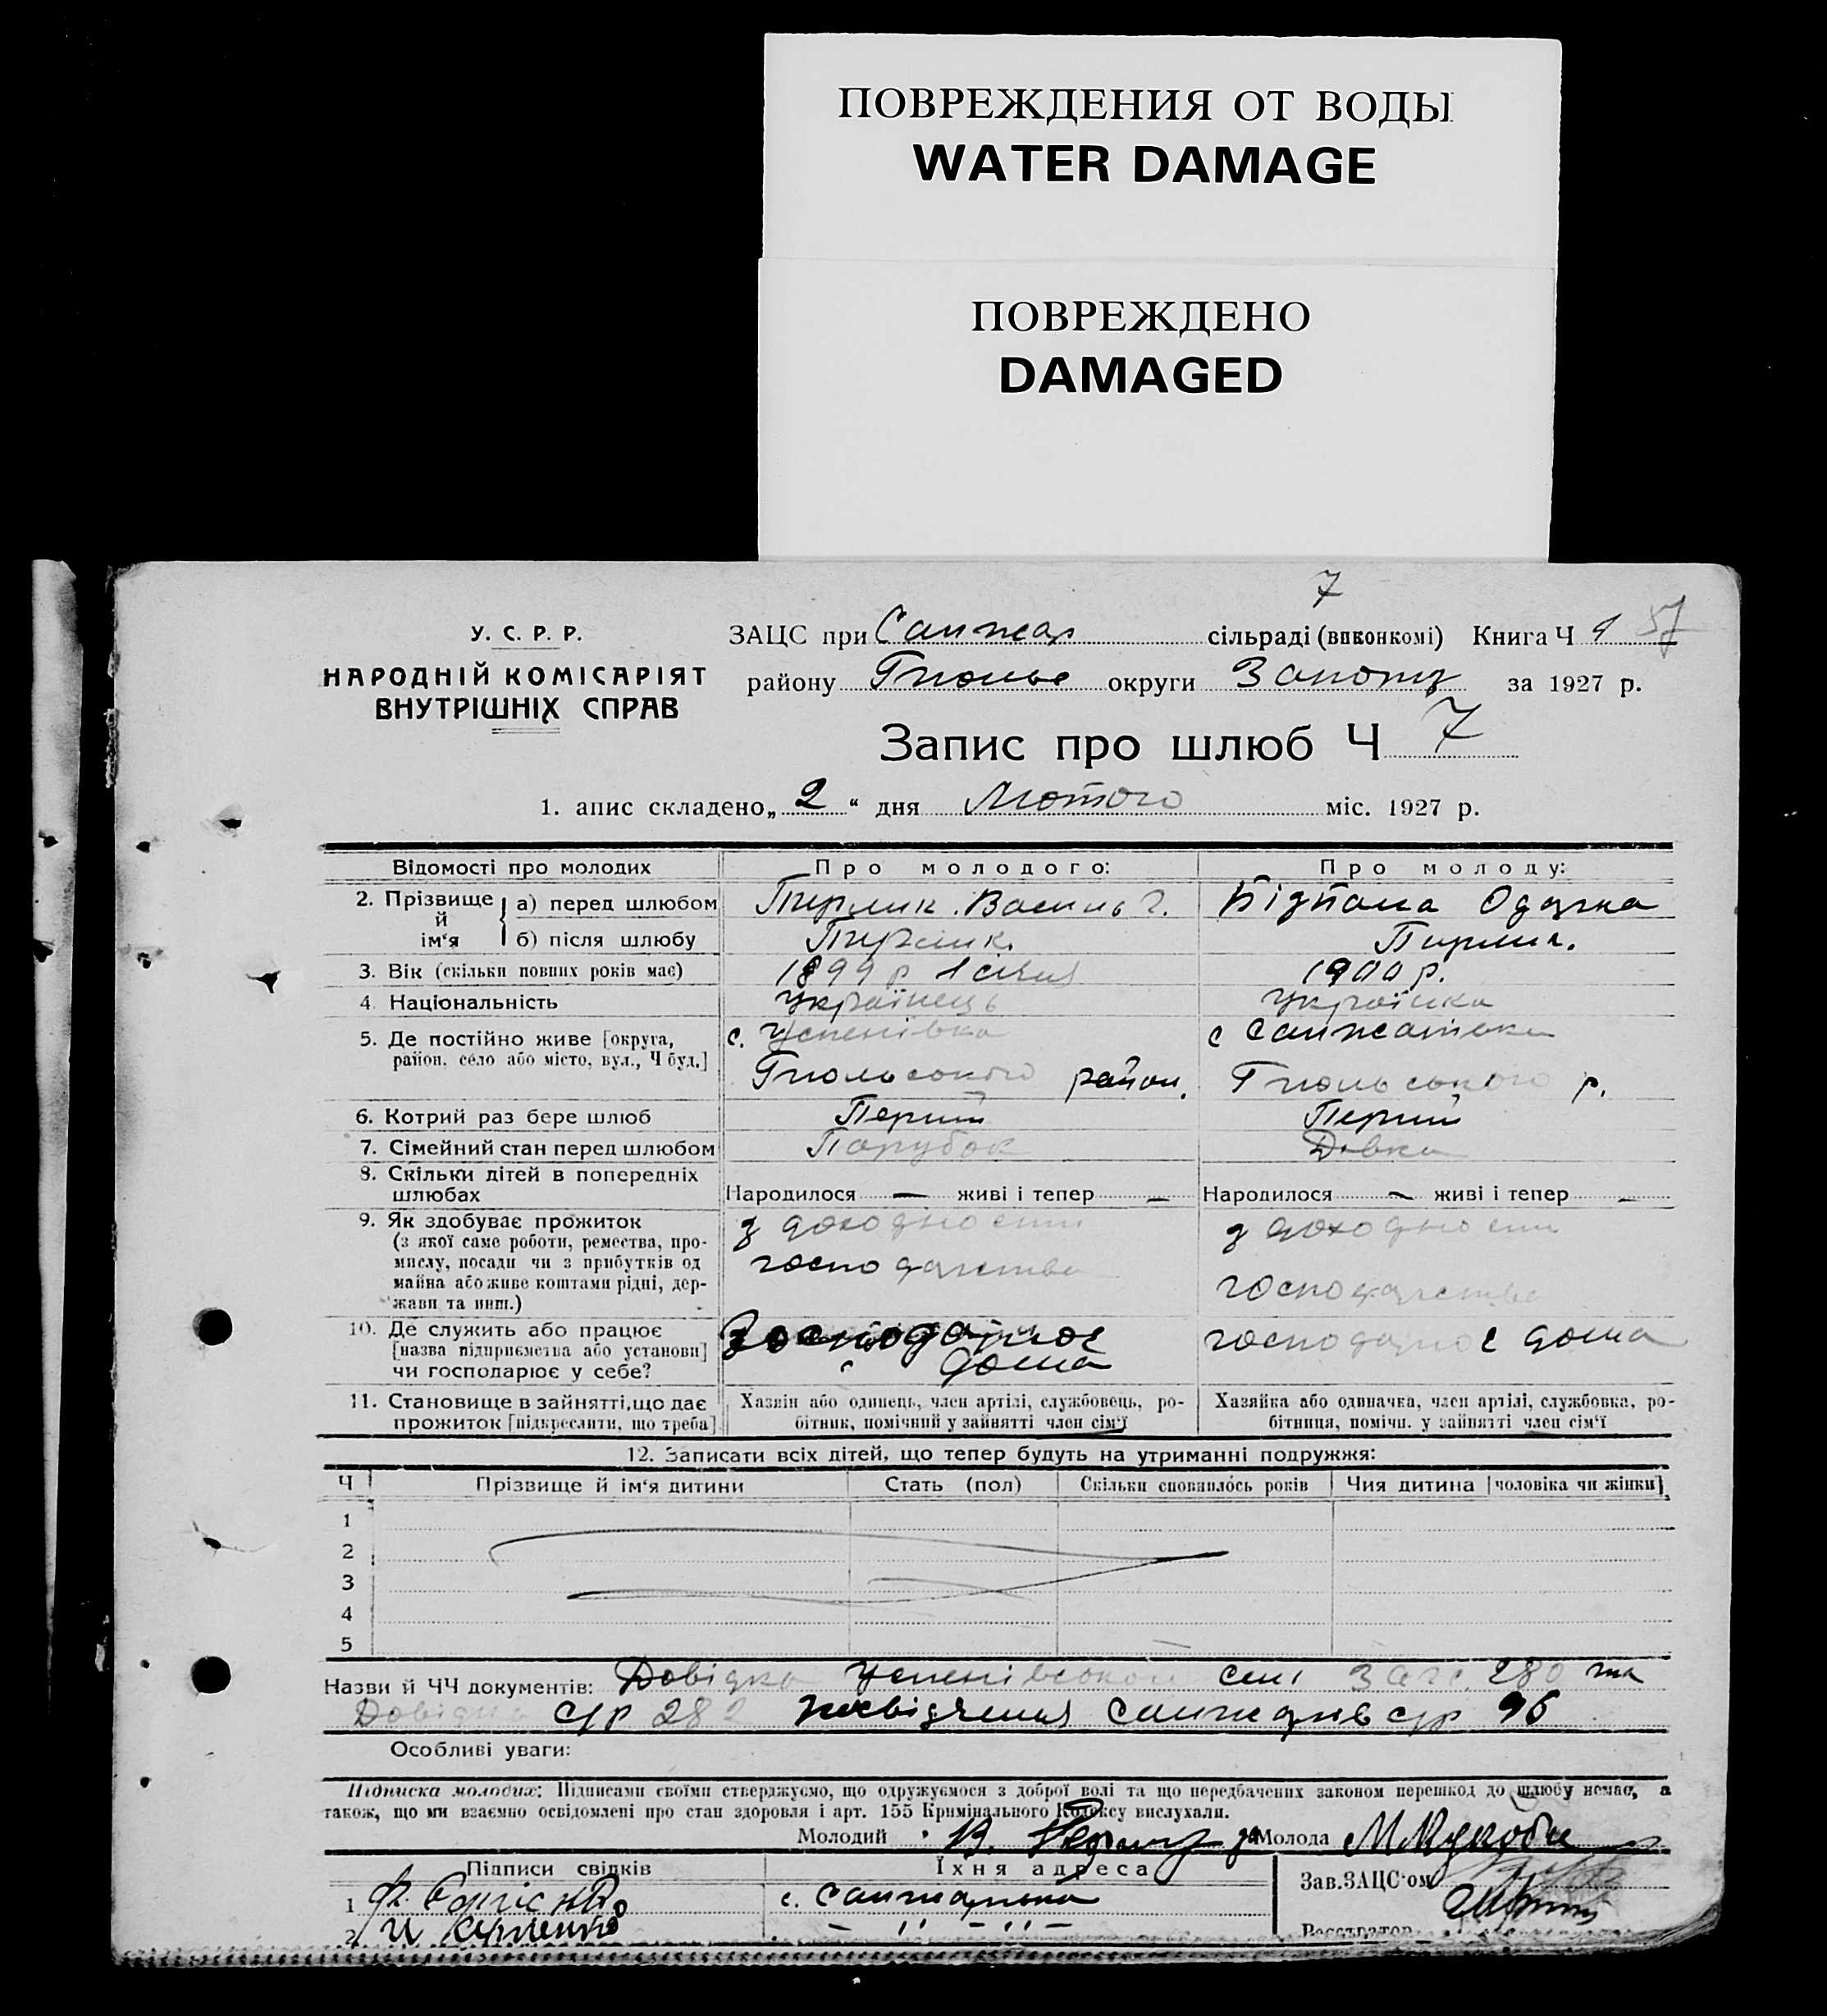 ПОВРЕЖДЕНИЯ ОТ ВОДЫ
WATER DAMAGE
ПОВРЕЖДЕНО
DAMAGED
7
У. С. Р. Р.
НАРОДНІЙ КОМІСАРІЯТ
ВНУТРІШНІХ СПРАВ
ЗАЦС при Санжар сільраді (виконкомі) Книга Ч 1 57
району Гполье округи Запоріз за 1927 р.
Запис про шлюб Ч 7
1. апис складено „ 2 “ дня Лютого міс. 1927 р.
Відомості про молодих Про молодого: Про молоду:
2. Прізвище й ім‘я а) перед шлюбом Пирлик Василь Г. Бідпала Одарка
б) після шлюбу Пирлик. Пирлик.
3. Вік (скільки повних років має) 1899 р 1 січня 1900 р.
4. Національність Українець Українка
5. Де постійно живе [округа, с. Успенівка с Санжарівки
район, село або місто, вул., Ч буд.] Гпольського район. Гпольського р.
6. Котрий раз бере шлюб Перший Перший
7. Сімейний стан перед шлюбом Парубок Дівка
8. Скільки дітей в попередніх
шлюбах Народилося — живі і тепер — Народилося — живі і тепер —
9. Як здобуває прожиток з доходности з доходности
(з якої саме роботи, ремества, про-
мислу, посади чи з прибутків од господарства господарства
майна або живе коштами рідні, дер-
жави та инш.)
10. Де служить або працює господарює господарює дома
[назва підприємства або установи] дома
чи господарює у себе?
11. Становище в зайнятті, що дає Хазяін або одинець, член артілі, службовець, ро- Хазяйка або одиначка, член артілі, службовка, ро-
прожиток [підкреслити, що треба] бітник, помічний у зайнятті член сім‘ї бітниця, помічн. у зайнятті член сім‘ї
12. Записати всіх дітей, що тепер будуть на утриманні подружжя:
Ч Прізвище й ім‘я дитини Стать (пол) Скільки сповнилось років Чия дитина [чоловіка чи жінки]
1
2
3
4
5
Назви й ЧЧ документів: Довідка Успенівської сел ЗАГС. 280 та
Довідка с/р 282 посвідчення Санжарів с/р 96
Особливі уваги:
Підписка молодих: Підписами своїми стверджуємо, що одружуємося з доброї волі та що передбачених законом перешкод до шлюбу немає, а
також, що ми взаємно освідомлені про стан здоровля і арт. 155 Кримінального Кодексу вислухали.
Молодий В. за Молода
Підписи свідків Їхня адреса Зав. ЗАЦС‘ом
1 с. Санжарівка
2 — ,, — ,, — Реєстратор